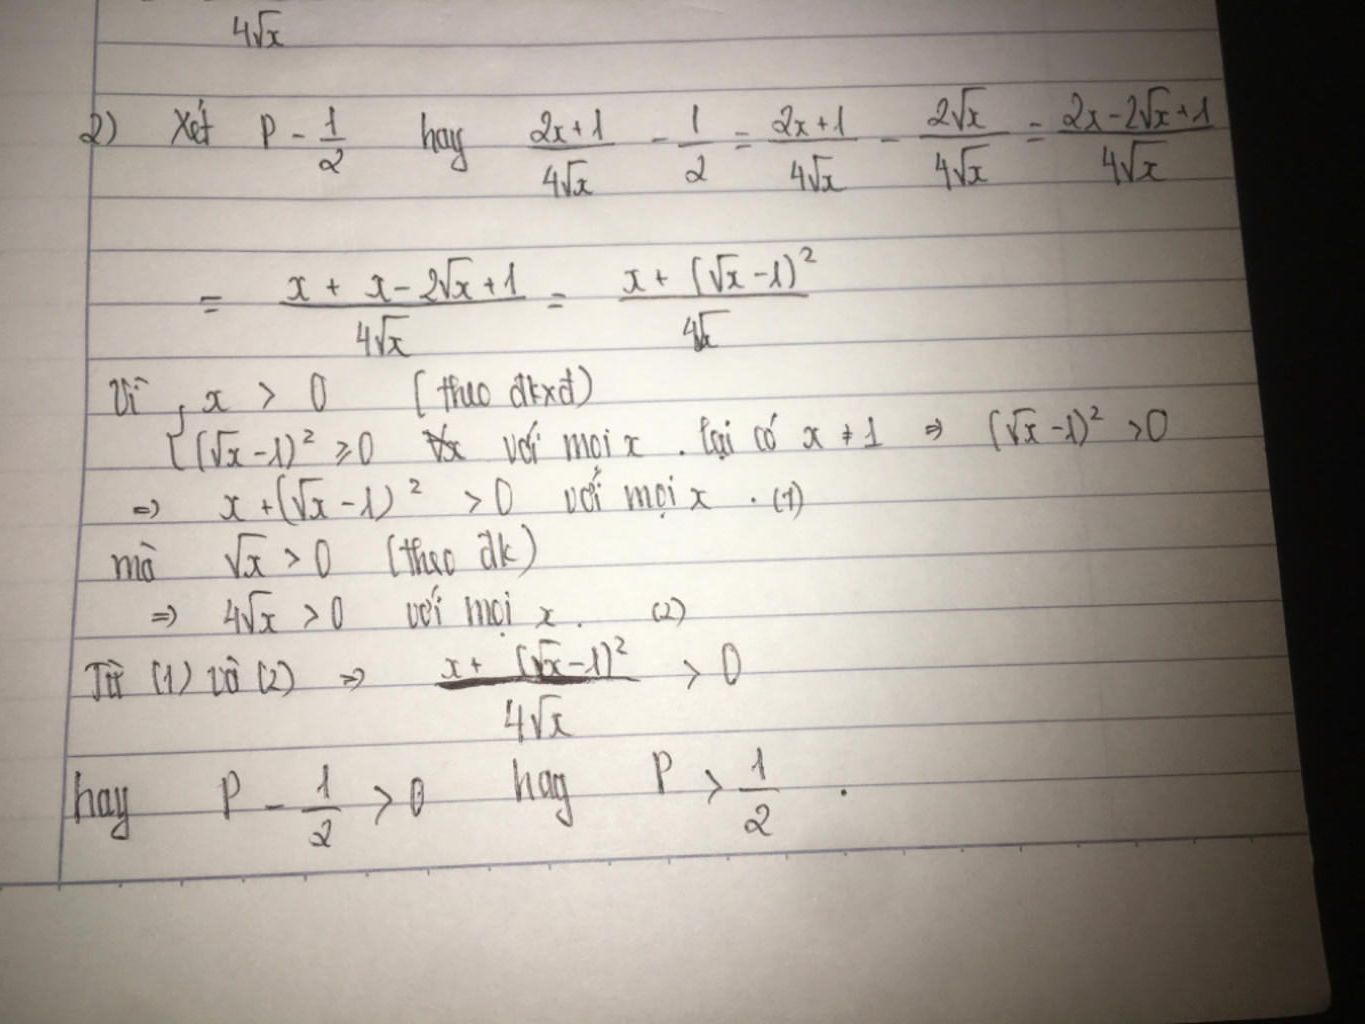 4√x
2) Xét P - 1/2 hay (2x+1)/(4√x) - 1/2 = (2x+1)/(4√x) - (2√x)/(4√x) = (2x-2√x+1)/(4√x)
= (x + x-2√x+1)/(4√x) = (x + (√x-1)²)/(4√x)
Vì { x > 0 (theo đkxđ)
(√x-1)² ≥ 0 với mọi x . lại có x ≠ 1 ⇒ (√x-1)² > 0
⇒ x + (√x-1)² > 0 với mọi x . (1)
mà √x > 0 (theo đk)
⇒ 4√x > 0 với mọi x . (2)
Từ (1) và (2) ⇒ (x + (√x-1)²)/(4√x) > 0
hay P - 1/2 > 0 hay P > 1/2 .